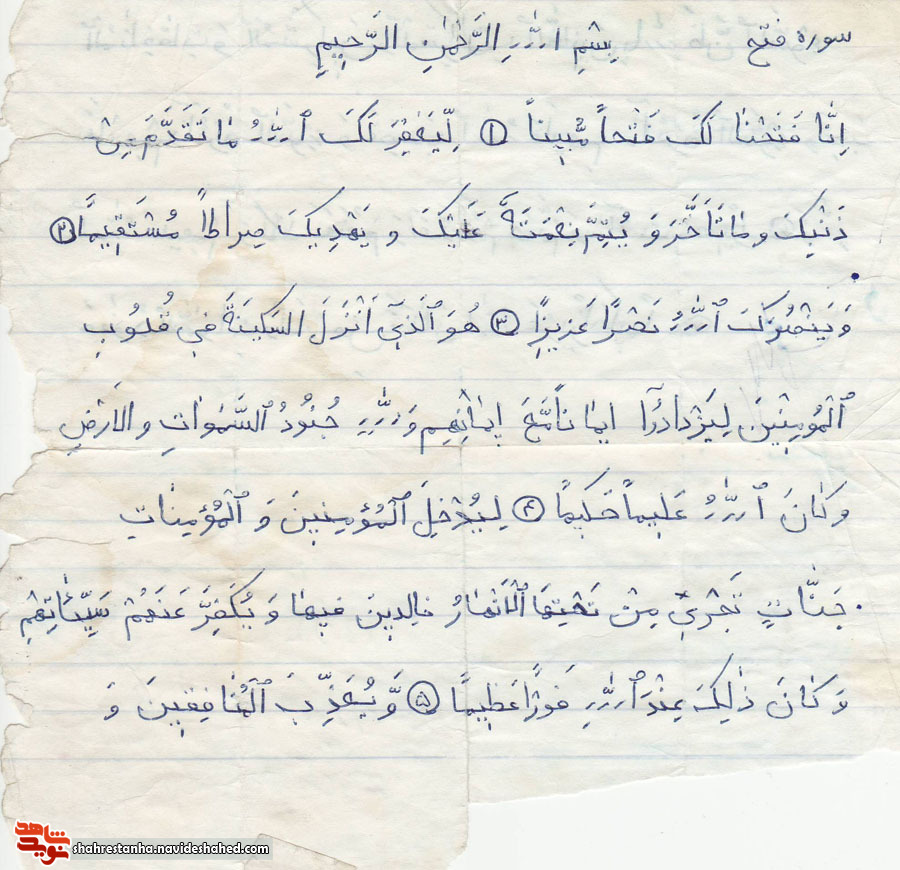 سوره فتح بِسْمِ اللّٰهِ الرَّحْمٰنِ الرَّحِيمِ
اِنَّا فَتَحْنا لَكَ فَتْحاً مُّبِيناً ۱ لِّيَغْفِرَ لَكَ ٱللّٰهُ مٰا تَقَدَّمَ مِنْ
ذَنْبِكَ و مٰا تَأَخَّرَ وَ يُتِمَّ نِعْمَتَهُ عَلَيْكَ و يَهْدِيكَ صِراطاً مُسْتَقِيماً ۲
وَ يَنْصُرَكَ ٱللّٰهُ نَصْرًا عَزيزًا ۳ هُوَ ٱلَّذِي اَنْزَلَ السَّكينَةَ في قُلُوبِ
ٱلْمُومِنِينَ لِيَزْدادُوٓا ايمٰاناً مَّعَ ايمٰانِهِم وَ لِلّٰهِ جُنُودُ ٱلسَّمٰواتِ و الارْضِ
وَ كٰانَ ٱللّٰهُ عَليماً حَكيمًا ۴ لِيُدْخِلَ ٱلْمُؤمِنِينَ وَ ٱلْمُؤمِنٰاتِ
جَنّٰاتٍ تَجْرِي مِنْ تَحْتِهَا ٱلْاَنْهٰارُ خٰالِدينَ فيهٰا وَ يُكَفِّرَ عَنْهُمْ سَيِّئٰاتِهِمْ
وَ كٰانَ ذٰلِكَ عِنْدَ ٱللّٰهِ فَوزًا عَظِيمًا ۵ وَّ يُعَذِّبَ ٱلْمُنٰافِقِينَ وَ
شاهد
نوید
shahrestanha.navideshahed.com